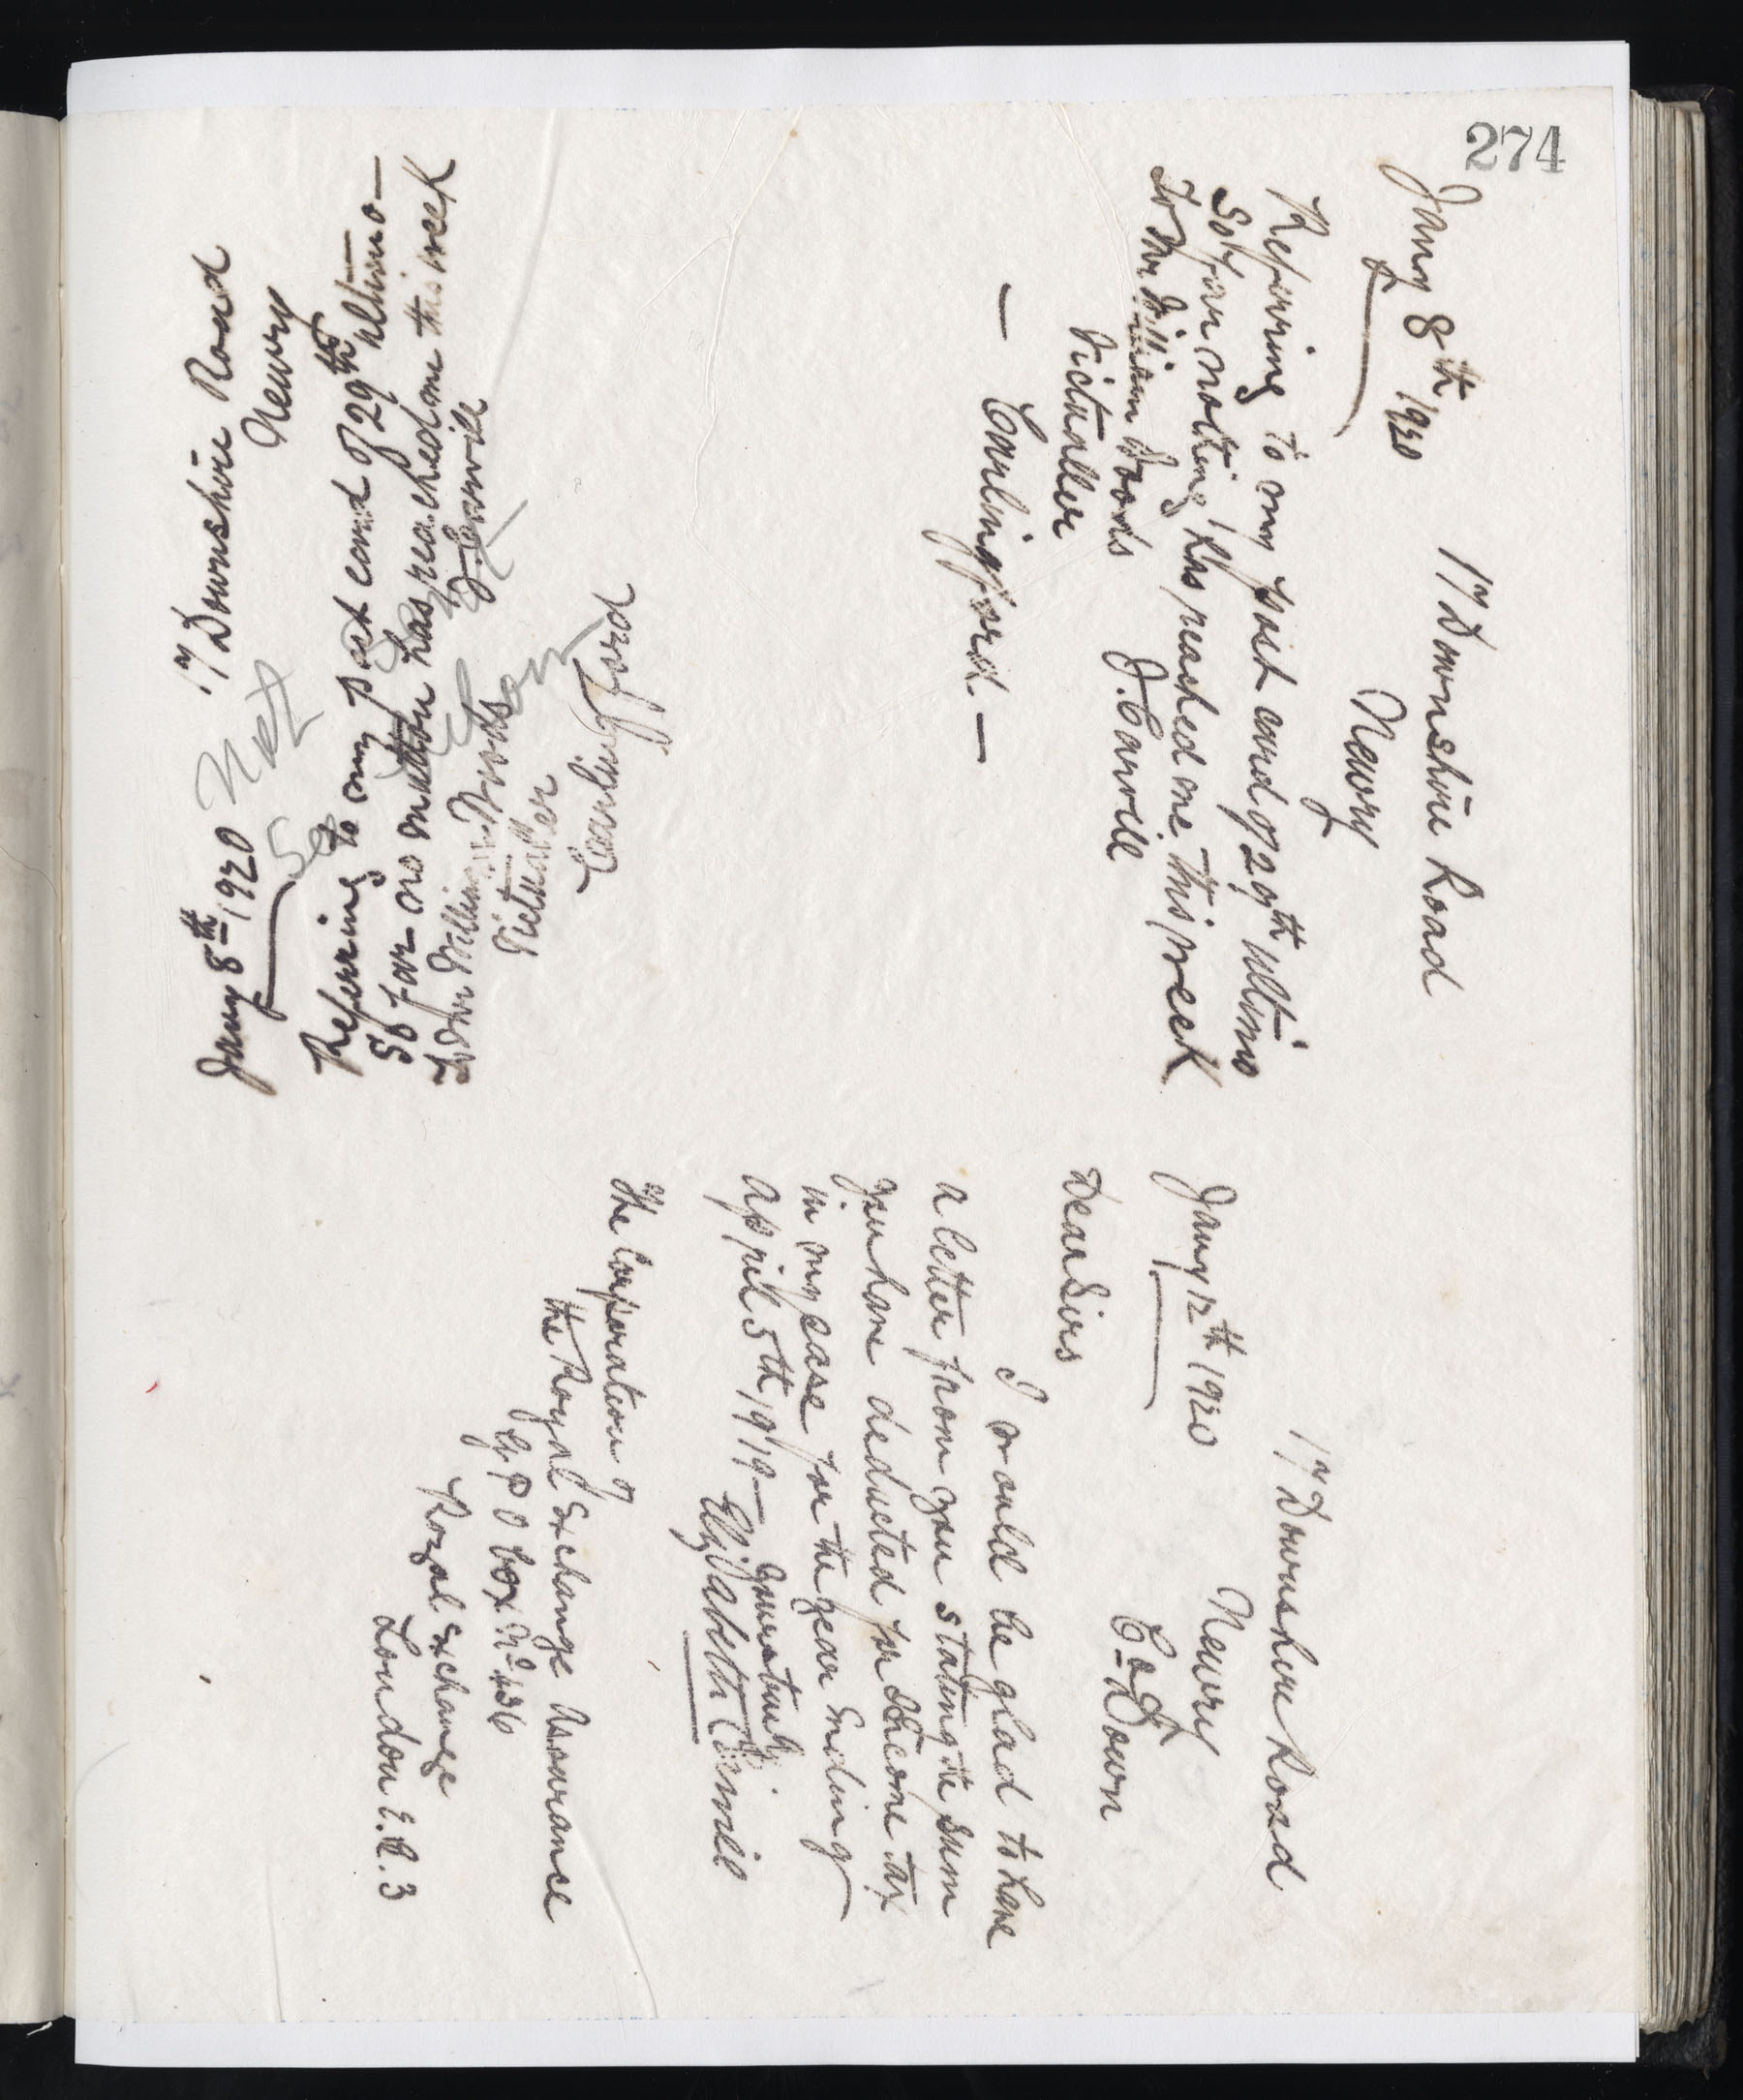 274
17 Downshire Road
Newry
Jany 8th 1920
Referring to my post card of 29th ultimo
So far nothing has reached me this week
J. Carvill
To Mr William Woods
Victualler
— Carlingford —
17 Downshire Road
Newry
Co Down
Jany 12th 1920
Dear Sirs
I would be glad to have
a letter from you stating the sum
you have deducted for Income tax
in my case for the year Ending
April 5th 1919—
Yours truly
Elizabeth Carvill
The Corporation of
the Royal Exchange Assurance
G P O box No 436
Royal Exchange
London E.C. 3
17 Downshire Road
Newry
Jany 8th 1920
Referring to my post card of 29th ultimo—
So far no mutton has reached me this week
J. Carvill
To Mr William Woods
Victualler
Carlingford